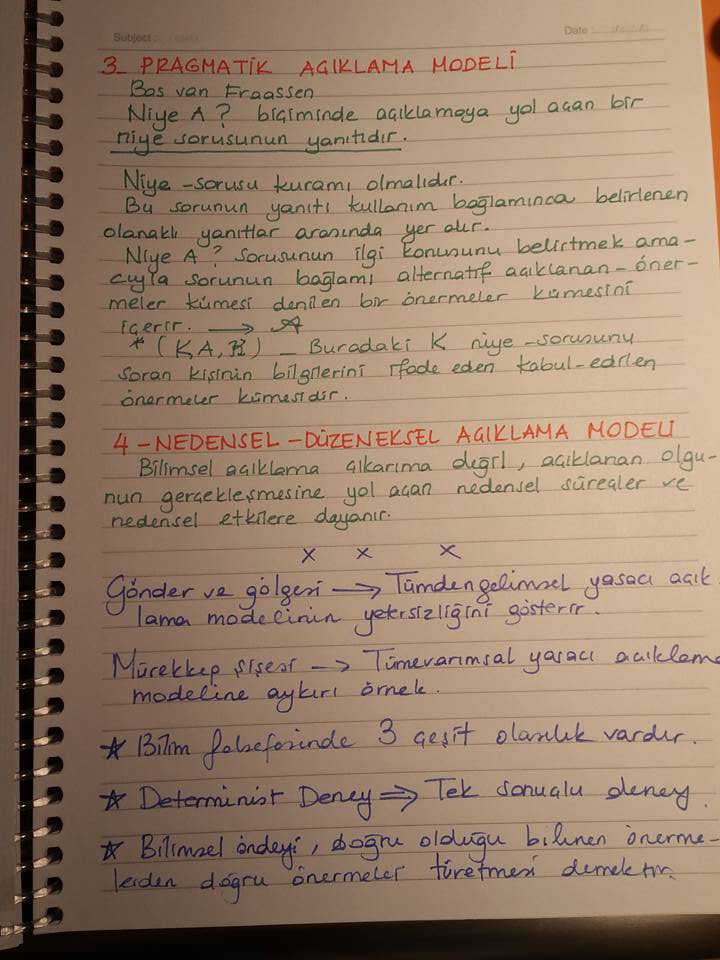 Subject :
Date :
3_ PRAGMATİK AÇIKLAMA MODELİ
Bas van Fraassen
Niye A? biçiminde açıklamaya yol açan bir
niye sorusunun yanıtıdır.
Niye -sorusu kuramı olmalıdır.
Bu sorunun yanıtı kullanım bağlamınca belirlenen
olanaklı yanıtlar arasında yer alır.
Niye A? Sorusunun ilgi konusunu belirtmek ama-
cıyla sorunun bağlamı alternatif açıklanan-öner-
meler kümesi denilen bir önermeler kümesini
içerir. → A
* (K, A, R) _ Buradaki K niye -sorusunu
soran kişinin bilgilerini ifade eden kabul-edilen
önermeler kümesidir.
4 -NEDENSEL -DÜZENEKSEL AÇIKLAMA MODELİ
Bilimsel açıklama çıkarıma değil, açıklanan olgu-
nun gerçekleşmesine yol açan nedensel süreçler ve
nedensel etkilere dayanır.
x x x
Gönder ve gölgesi → Tümdengelimsel yasacı açık
lama modelinin yetersizliğini gösterir.
Mürekkep şişesi → Tümevarımsal yasacı açıklama
modeline aykırı örnek.
* Bilim felsefesinde 3 çeşit olasılık vardır.
* Determinist Deney ⇒ Tek sonuçlu deney.
* Bilimsel öndeyi, doğru olduğu bilinen önerme-
lerden doğru önermeler türetmesi demektir.